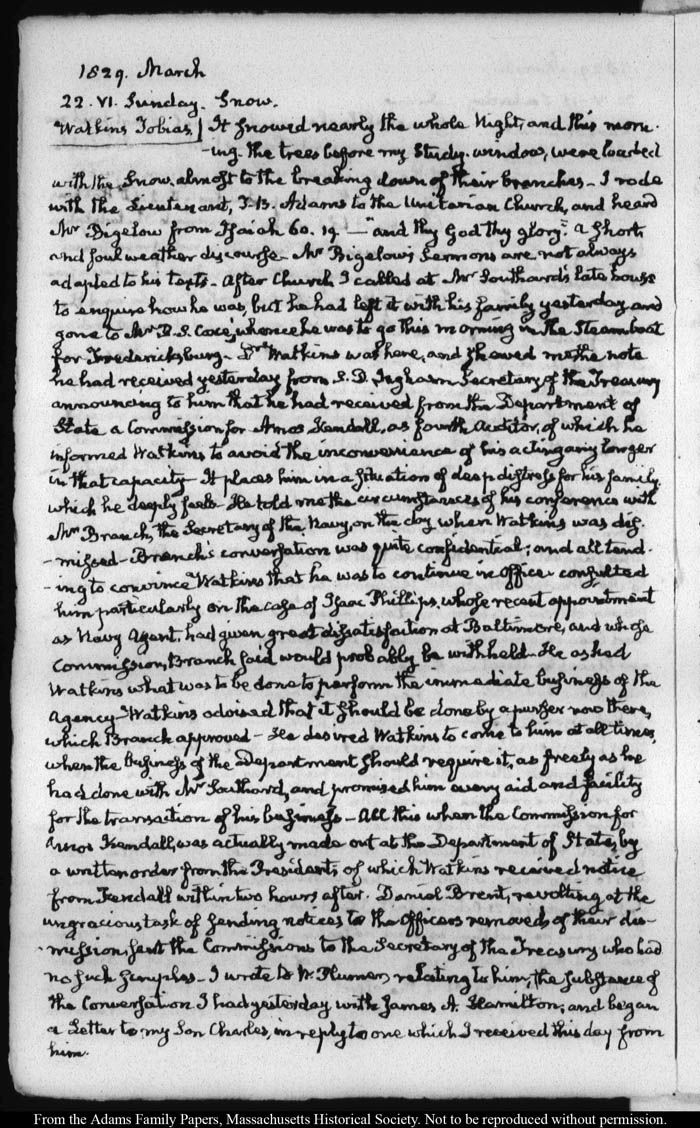 1829. March
22. VI. Sunday. Snow.
Watkins Tobias | It snowed nearly the whole Night, and this morn-
-ing the trees before my Study-window, were loaded
with the Snow, almost to the breaking down of their branches - I rode
with the Lieutenant, T. B. Adams to the Unitarian Church, and heard
Mr Bigelow from Isaiah 60. 19. — "and thy God thy glory". a short
and foul weather discourse - Mr Bigelow's Sermons are not always
adapted to his texts - After Church I called at Mr Southard's late house
to enquire how he was, but he had left it with his family yesterday and
gone to Mr B. S. Coxe's, whence he was to go this morning in the Steamboat
for Fredericksburg - Dr Watkins was here, and shewed me the note
he had received yesterday from S. D. Ingham Secretary of the Treasury
announcing to him that he had received from the Department of
State a Commission for Amos Kendall, as fourth Auditor, of which he
informed Watkins to avoid the inconvenience of his acting any longer
in that capacity - It places him in a situation of deep distress for his family
which he deeply feels - He told me the circumstances of his conference with
Mr Branch, the Secretary of the Navy, on the day when Watkins was dis-
-missed - Branch's conversation was quite confidential; and all tend-
-ing to convince Watkins that he was to continue in Office - consulted
him particularly on the case of Isaac Phillips, whose recent appointment
as Navy Agent, had given great dissatisfaction at Baltimore, and whose
Commission, Branch said would probably be withheld - He asked
Watkins what was to be done to perform the immediate business of the
Agency - Watkins advised that it should be done by a purser now there,
which Branch approved - He desired Watkins to come to him at all times,
when the business of the Department should require it, as freely as he
had done with Mr Southard, and promised him every aid and facility
for the transaction of his business - All this when the Commission for
Amos Kendall, was actually made out at the Department of State, by
a written order from the President; of which Watkins received notice
from Kendall within two hours after. Daniel Brent, revolting at the
ungracious task of sending notices to the Officers removed, of their dis-
-mission, sent the Commissions to the Secretary of the Treasury who had
no such scruples - I wrote to W. Plumer, relating to him, the substance of
the Conversation I had yesterday with James A. Hamilton; and began
a Letter to my Son Charles, in reply to one which I received this day from
him.
From the Adams Family Papers, Massachusetts Historical Society. Not to be reproduced without permission.